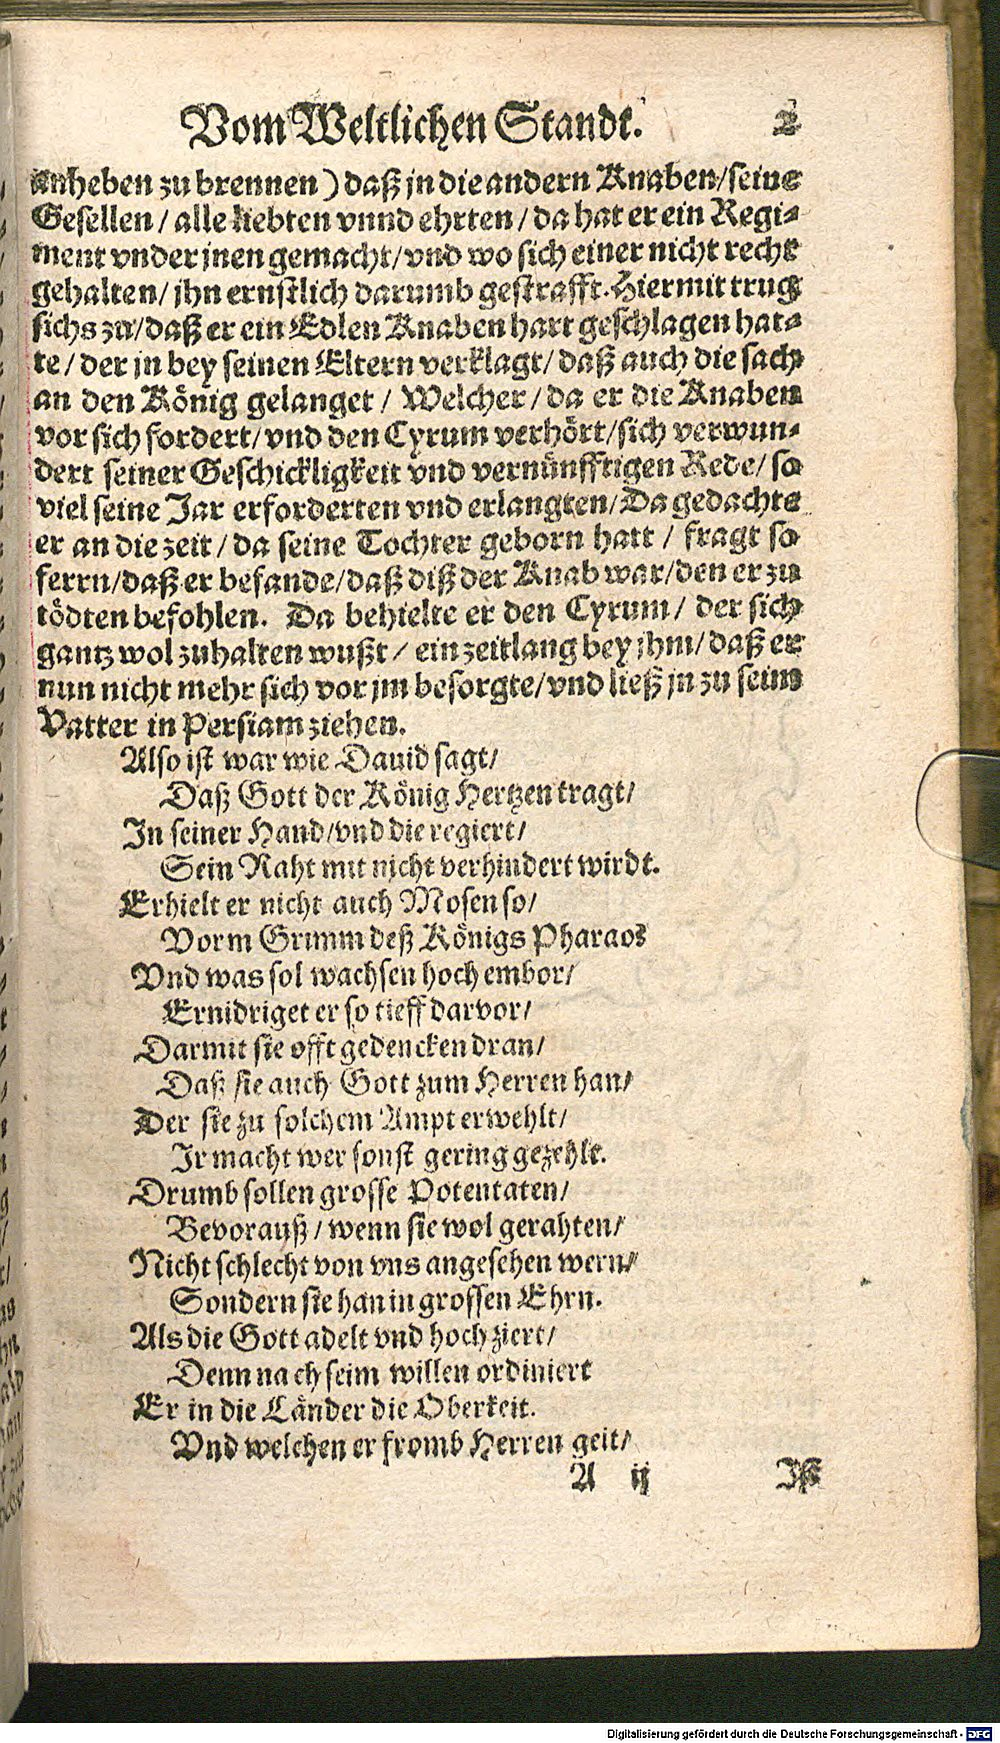 Vom Weltlichen Standt. 2
anheben zu brennen) daß jn die andern Knaben/seine
Gesellen/ alle liebten vnnd ehrten/ da hat er ein Regi-
ment vnder jnen gemacht/vnd wo sich einer nicht recht
gehalten/ jhn ernstlich darumb gestrafft. Hiermit trug
sichs zu/daß er ein Edlen Knaben hart geschlagen hat-
te/ der jn bey seinen Eltern verklagt/ daß auch die sach
an den König gelanget/ Welcher/ da er die Knaben
vor sich fordert/ vnd den Cyrum verhört/sich verwun-
dert seiner Geschickligkeit vnd vernünfftigen Rede/ so
viel seine Jar erforderten vnd erlangten/ Da gedachte
er an die zeit/ da seine Tochter geborn hatt/ fragt so
ferrn/daß er befande/daß diß der Knab war/den er zu
tödten befohlen. Da behielte er den Cyrum/ der sich
gantz wol zuhalten wußt/ ein zeitlang bey jhm/ daß er
nun nicht mehr sich vor jm besorgte/vnd ließ jn zu seim
Vatter in Persiam ziehen.
Also ist war wie Dauid sagt/
Daß Gott der König Hertzen tragt/
In seiner Hand/vnd die regiert/
Sein Raht mit nicht verhindert wirdt.
Erhielt er nicht auch Mosen so/
Vorm Grimm deß Königs Pharao?
Vnd was sol wachsen hoch embor/
Ernidriget er so tieff darvor/
Darmit sie offt gedencken dran/
Daß sie auch Gott zum Herren han/
Der sie zu solchem Ampt erwehlt/
Ir macht wer sonst gering gezehlt.
Drumb sollen grosse Potentaten/
Bevorauß/ wenn sie wol gerahten/
Nicht schlecht von vns angesehen wern/
Sondern sie han in grossen Ehrn.
Als die Gott adelt vnd hoch ziert/
Denn nach seim willen ordiniert
Er in die Länder die Oberkeit.
Vnd welchen er fromb Herren geit/
A ij Ist
Digitalisierung gefördert durch die Deutsche Forschungsgemeinschaft - DFG